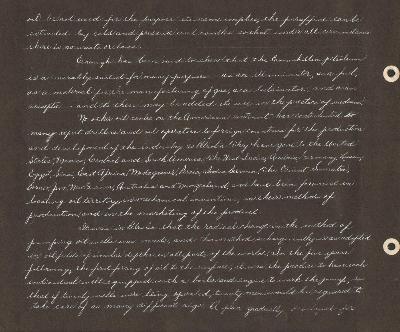 oil is not used for the purpose its name implies, the paraffine can be
extracted by cold and pressed into candles so that under all circumstances
there is no waste or loss.
Enough has been said to show that the Enniskillen petroleum
is admirably suited for many purposes - as an illuminator, as a fuel,
as a material for the manufacturing of gas, as a lubricator, and even
- and to these may be added its use in the practice of medicine.
No other oil centre on the American continent has contributed so
many expert drillers and oil operators to foreign countries for the production
and development of the industry as Petrolia. They have gone to the United
States, Mexico, Central and South America, the West Indies, Austria, Germany, Russia,
Egypt, East Africa, Madagascar, Persia, India, Burma, the Orient, Sumatra,
Borneo, Australia and New Zealand, and have been foremost in
locating oil territory, in mechanical invention, in the methods of
production, and in the marketing of the product.
It was in Petrolia that the radical change in the method of
pumping oil wells was made, and the method is being widely used
in oil fields of similar depths in all parts of the world. In the five years
following the first piping of oil to the surface, it was the practice to have each
individual well equipped with a boiler and engine to work the pump, so
that if twenty wells were being operated, twenty men would be required to
take care of as many different rigs. A plan gradually for